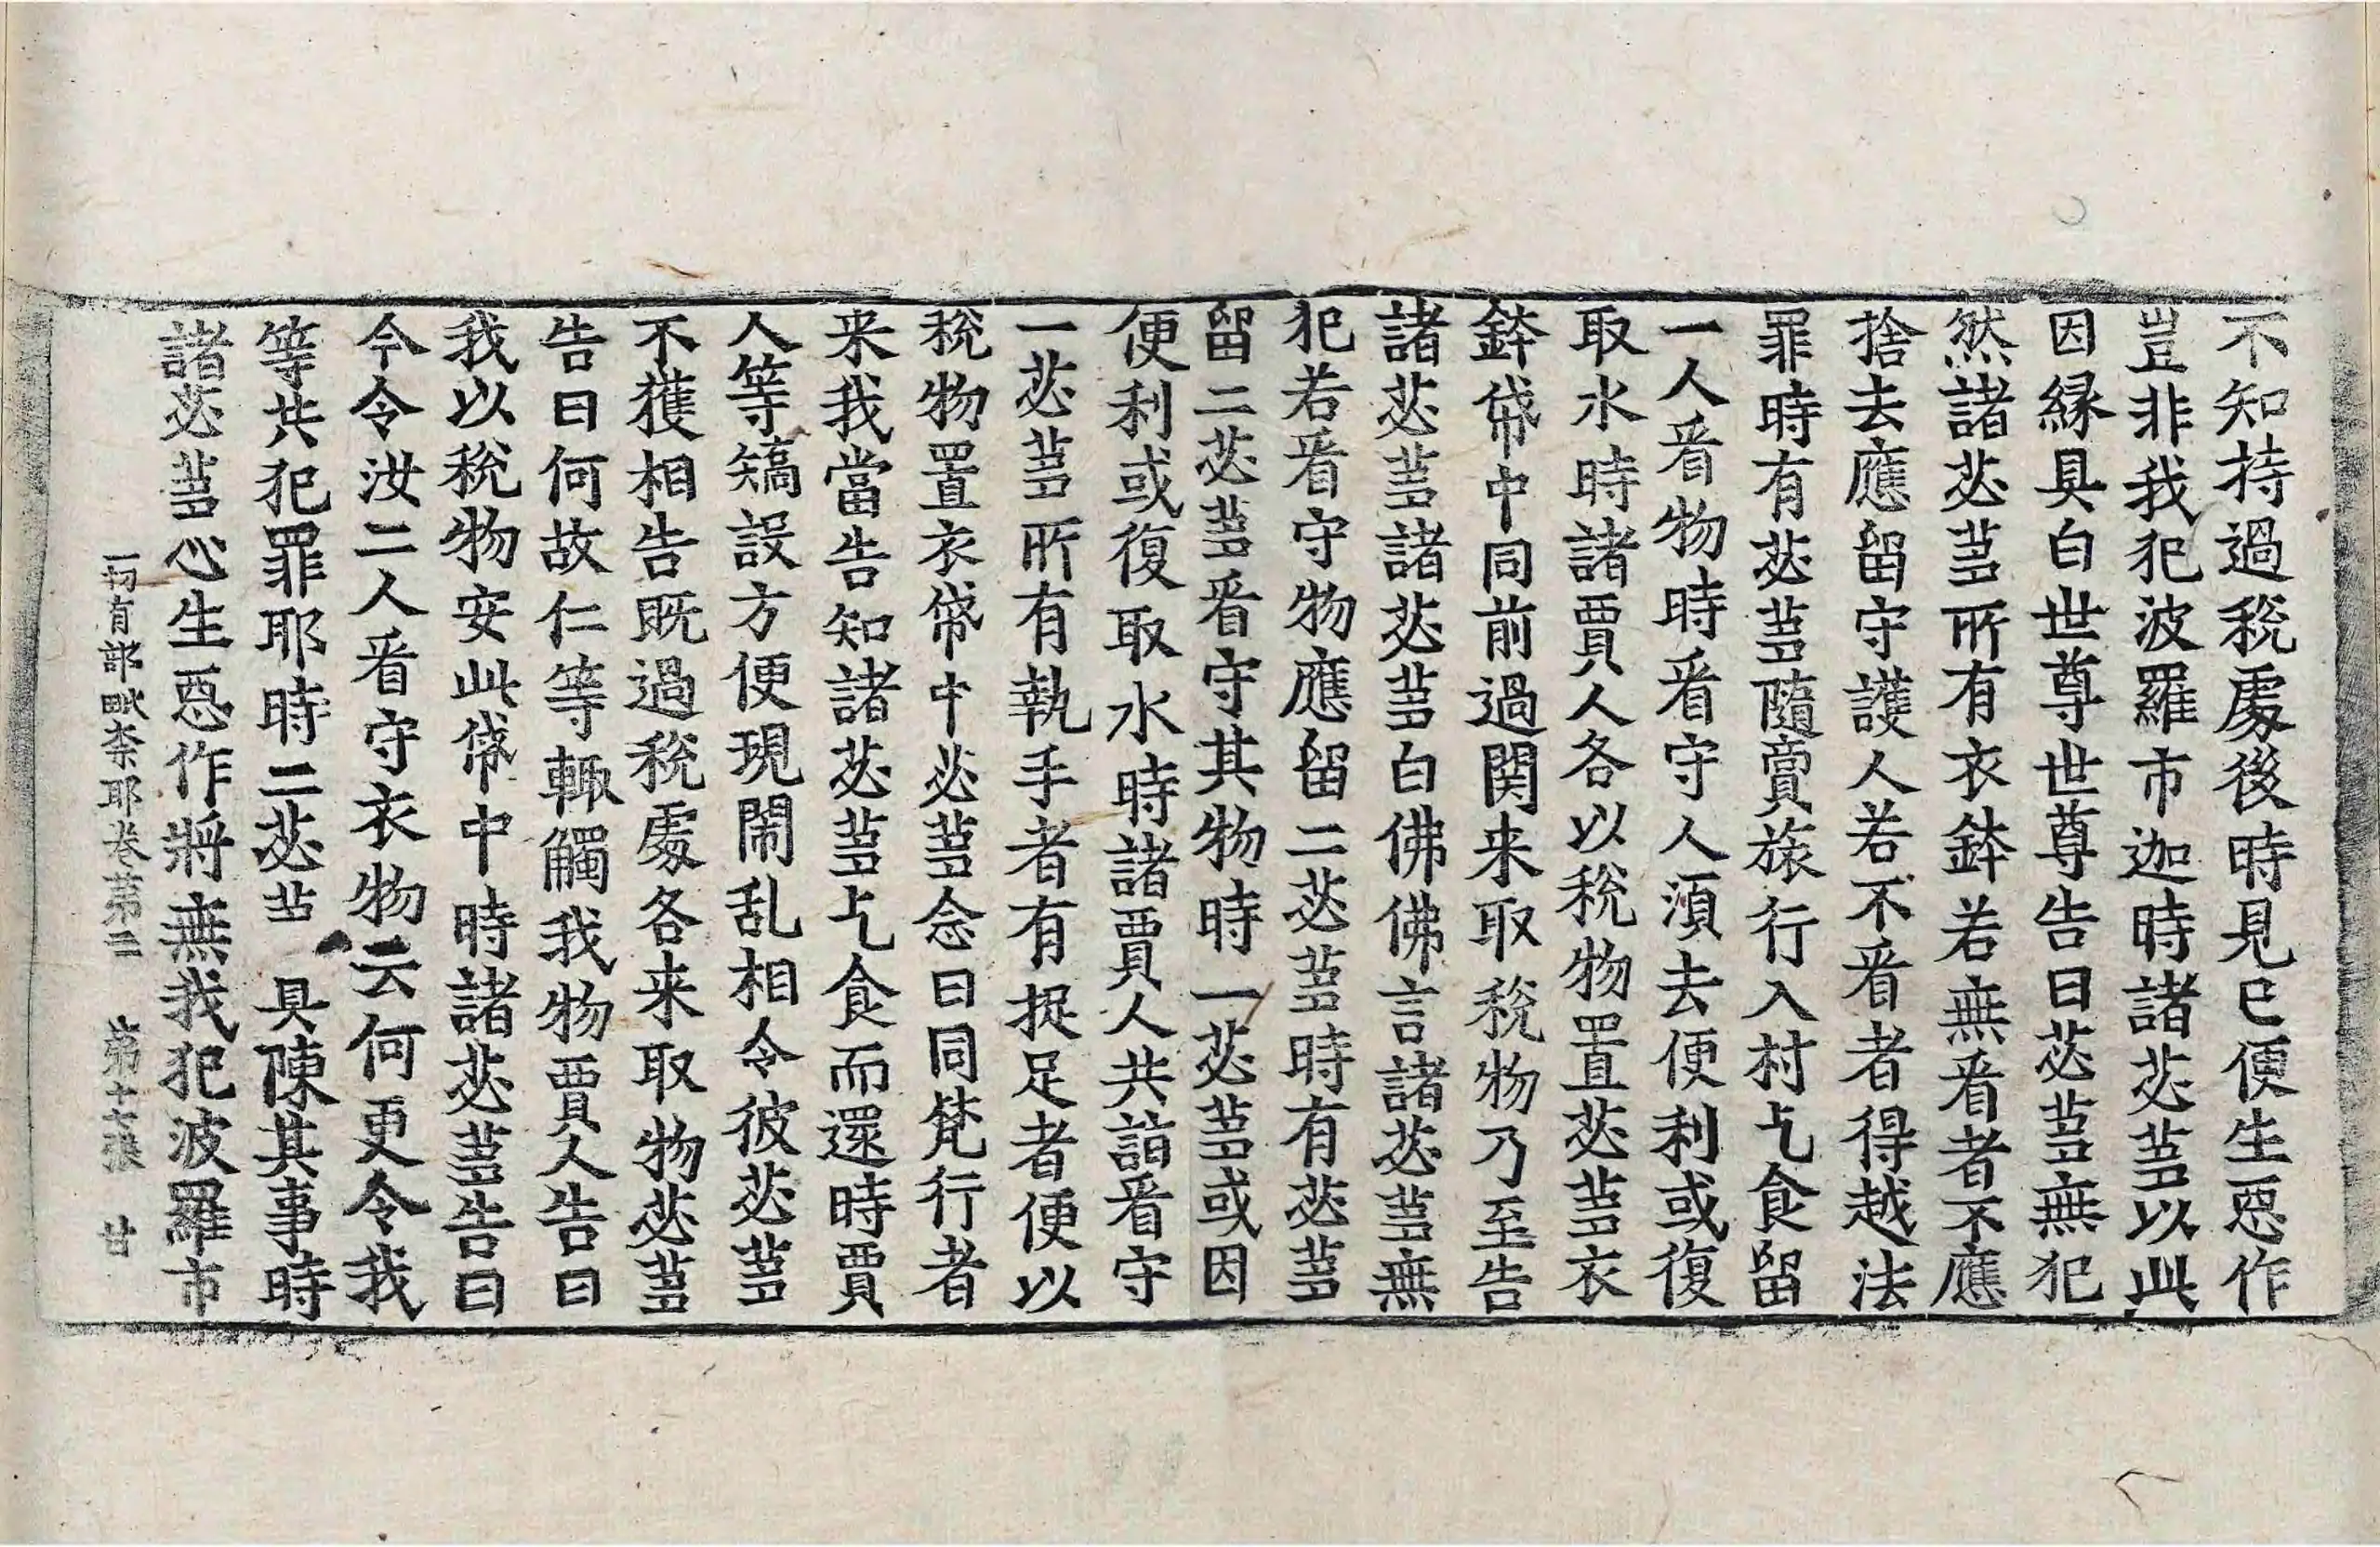 不知持過稅處後時見已便生惡作
豈非我犯波羅市迦時諸苾芻以此
因緣具白世尊世尊告曰苾芻無犯
然諸苾芻所有衣鉢若無看者不應
捨去應留守護人若不看者得越法
罪時有苾芻隨賣旅行入村乞食留
一人看物時看守人須去便利或復
取水時諸賈人各以稅物置苾芻衣
鉢帒中同前過関来取稅物乃至告
諸苾芻諸苾芻白佛佛言諸苾芻無
犯若看守物應留二苾芻時有苾芻
留二苾芻看守其物時一苾芻或因
便利或復取水時諸賈人共詣看守
一苾芻所有執手者有捉足者便以
稅物置衣帒中苾芻念曰同梵行者
来我當告知諸苾芻乞食而還時賈
人等矯設方便現鬧乱相令彼苾芻
不獲相告既過稅處各来取物苾芻
告曰何故仁等輙觸我物賈人告曰
我以稅物安此帒中時諸苾芻告曰
今令汝二人看守衣物云何更令我
等共犯罪耶時二苾芻具陳其事時
諸苾芻心生惡作將無我犯波羅市
一切有部毗奈耶卷第二 第十七張 甘